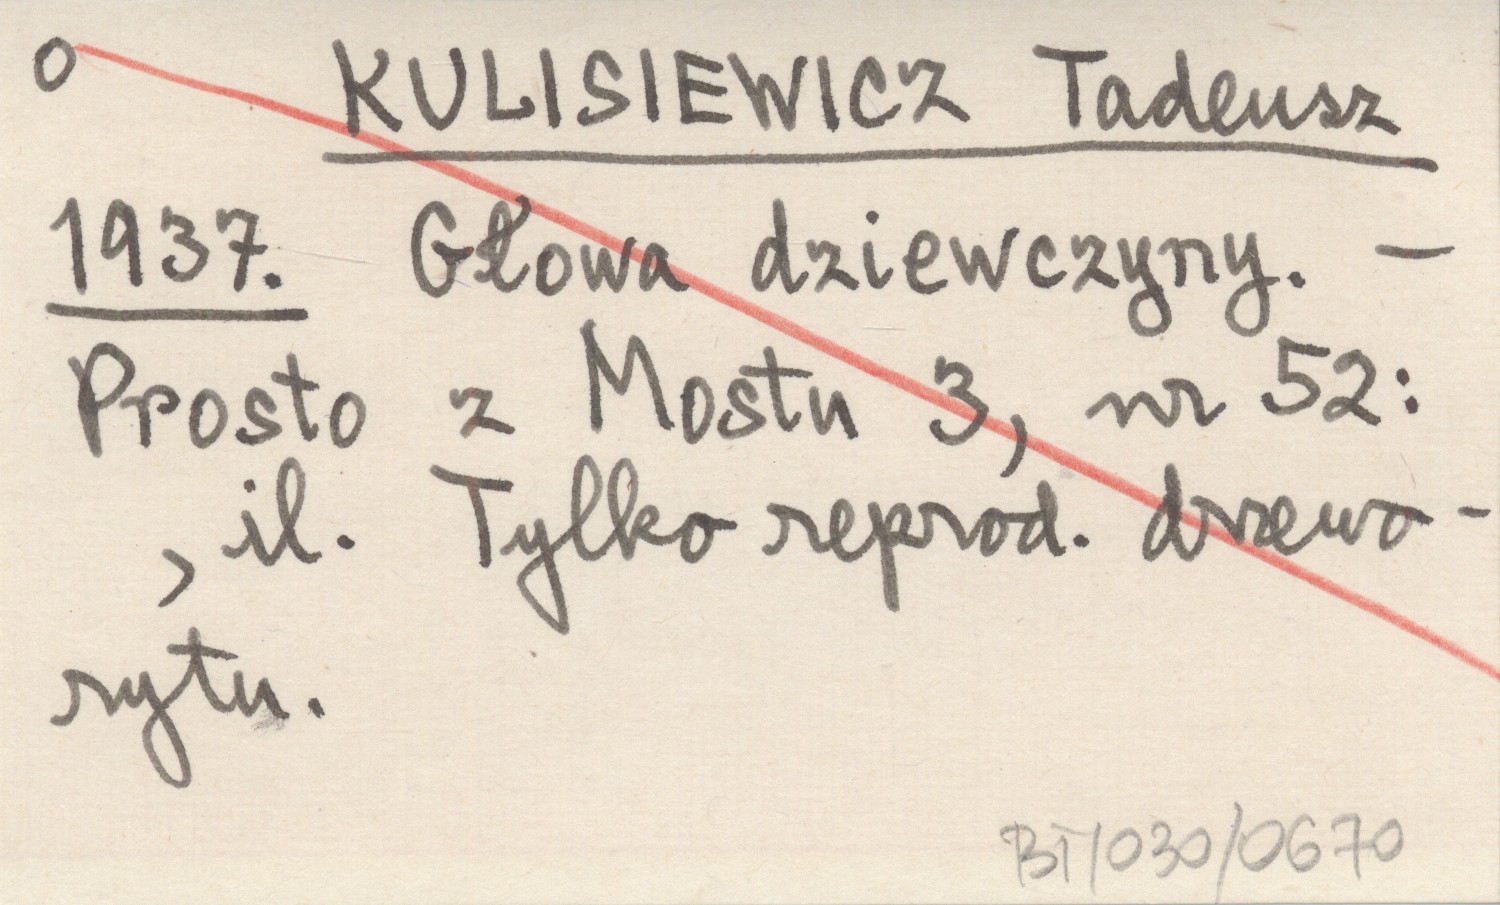 o KULISIEWICZ Tadeusz
1937. Głowa dziewczyny. —
Prosto z Mostu 3, nr 52:
, il. Tylko reprod. drzewo-
rytu.
BT/030/0670